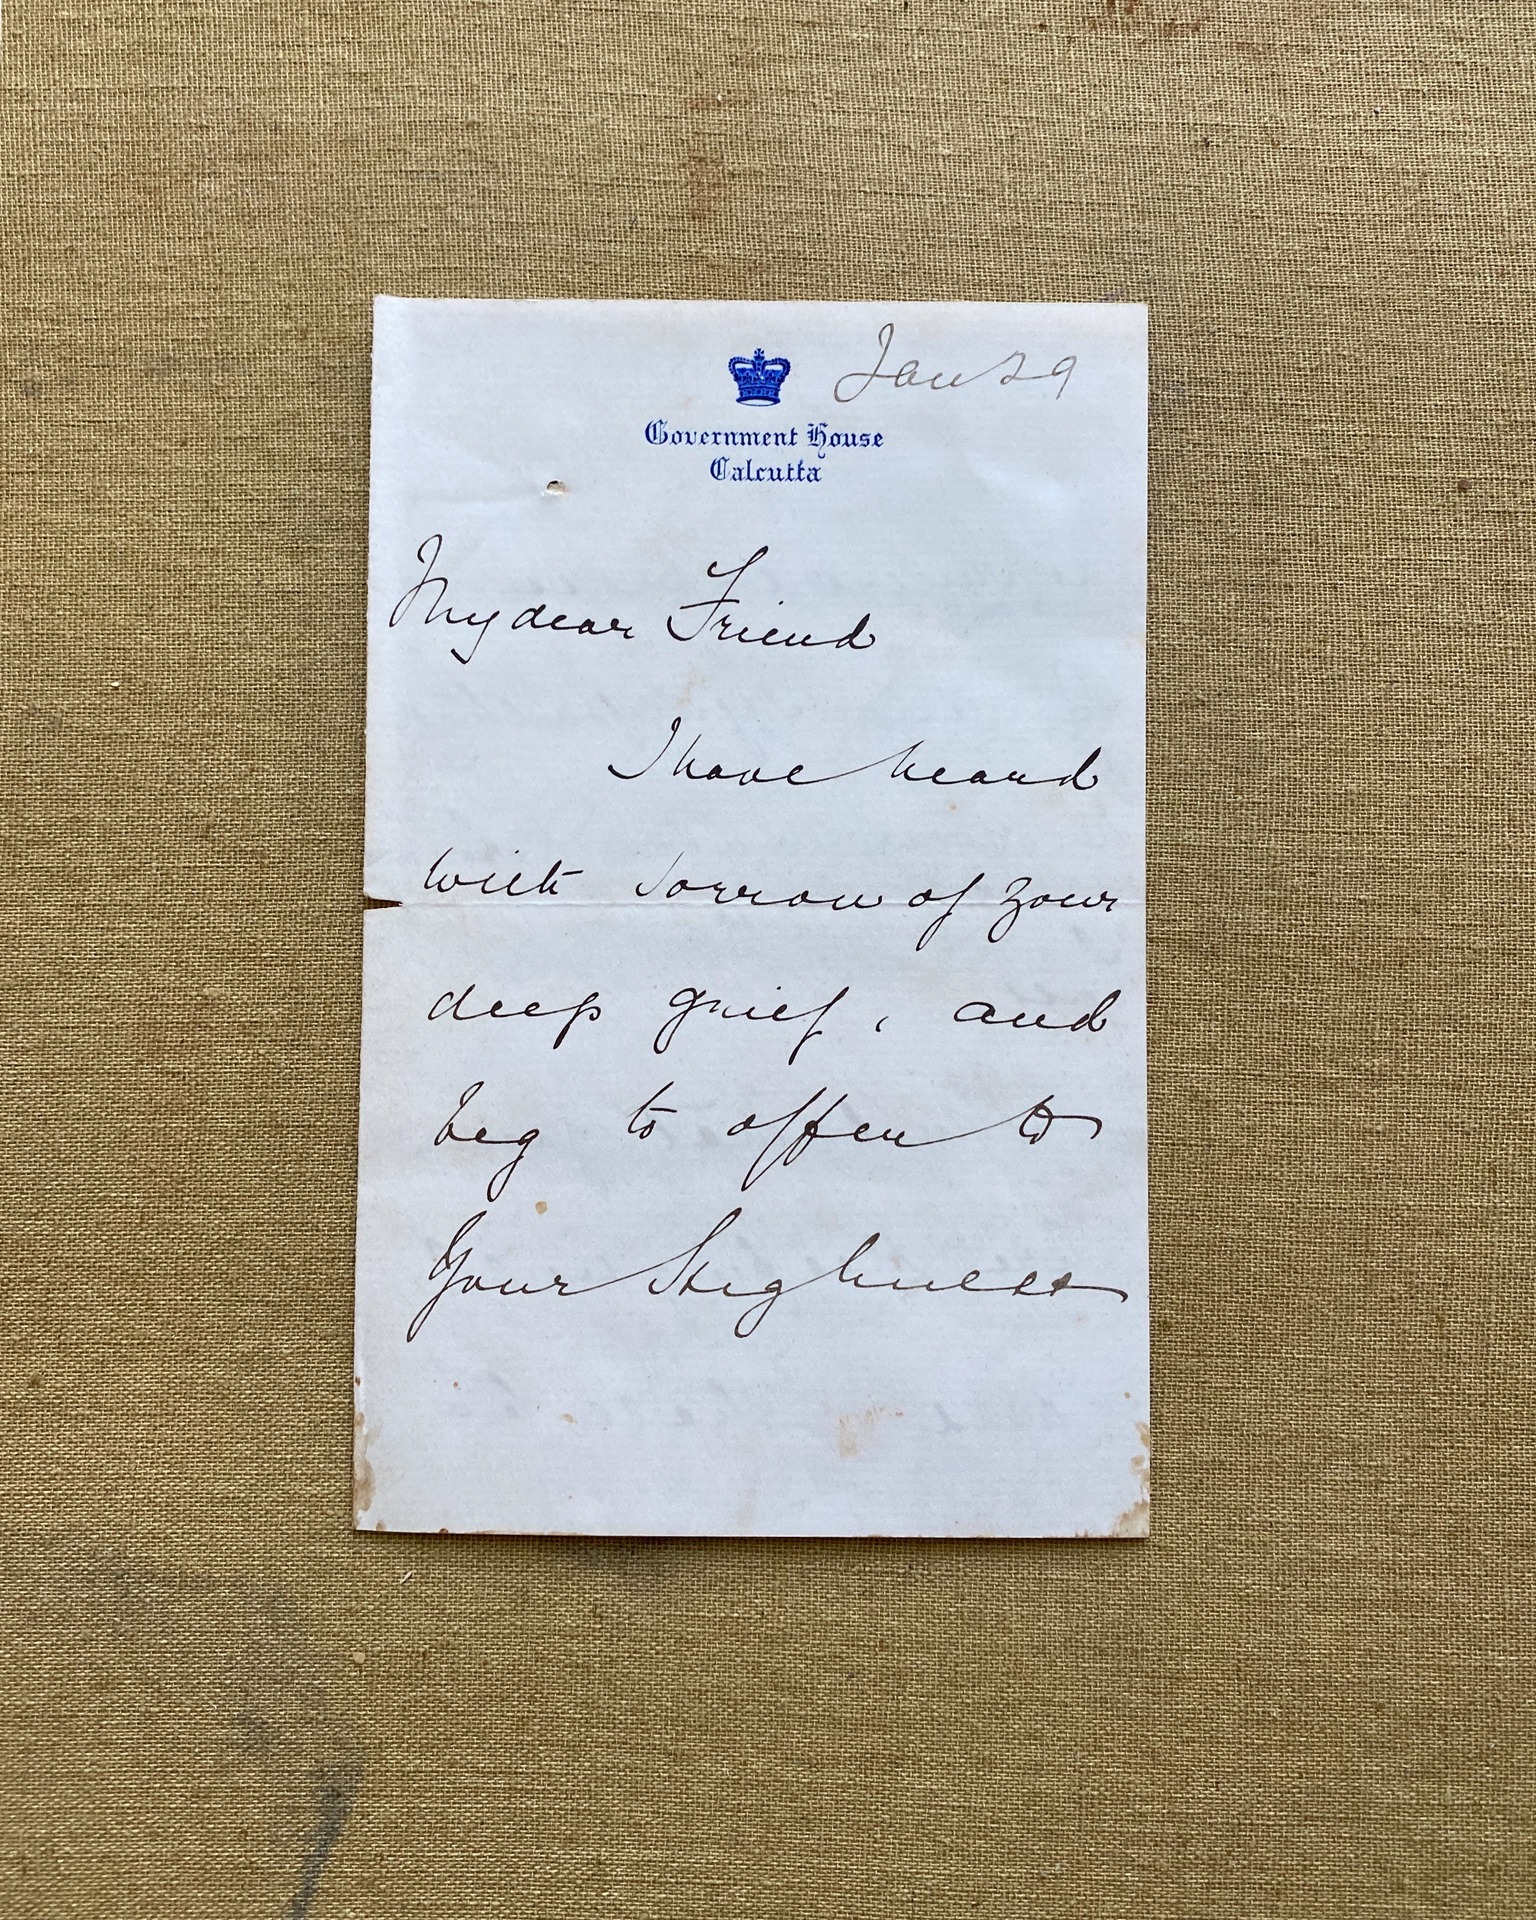 Jan 29
Government House
Calcutta
My dear Friend
I have heard
with sorrow of your
deep grief, and
beg to offer to
Your Highness